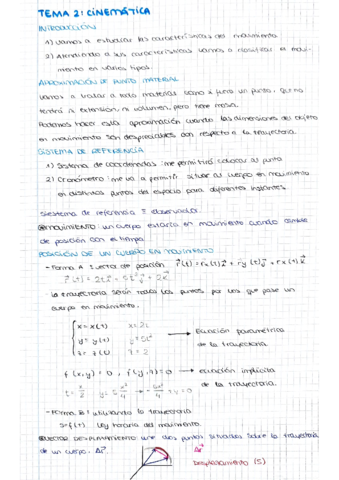 TEMA 2: CINEMÁTICA
INTRODUCCIÓN
1) Vamos a estudiar las características del movimiento.
2) Atendiendo a sus características vamos a clasificar el movi-
miento en varios tipos.
APROXIMACIÓN DE PUNTO MATERIAL
Vamos a tratar a todo material como si fuera un punto, que no
tendrá ni extensión, ni volumen, pero tiene masa.
Podemos hacer esta aproximación cuando las dimensiones del objeto
en movimiento son despreciables con respecto a la trayectoria.
SISTEMA DE REFERENCIA
1) Sistema de coordenadas: me permitirá colocar al punto
2) Cronómetro: me va a permitir situar al cuerpo en movimiento
en distintos puntos del espacio para diferentes instantes.
Sistema de referencia ≡ observador
MOVIMIENTO: un cuerpo estará en movimiento cuando cambie
de posición con el tiempo.
POSICIÓN DE UN CUERPO EN MOVIMIENTO
- Forma A: vector de posición
- La trayectoria serán todos los puntos por los que pase un
cuerpo en movimiento.
x = x(t) x = 2t
y = y(t) y = 5t² → Ecuación paramétrica
z = z(t) z = 2 de la trayectoria.
f(x,y) = 0, f(y,z) = 0 → ecuación implícita
de la trayectoria.
- Forma B: utilizando la trayectoria
s = f(t) Ley horaria del movimiento.
VECTOR DESPLAZAMIENTO: une dos puntos situados sobre la trayectoria
de un cuerpo. Δr⃗
Δr⃗
Desplazamiento (S)